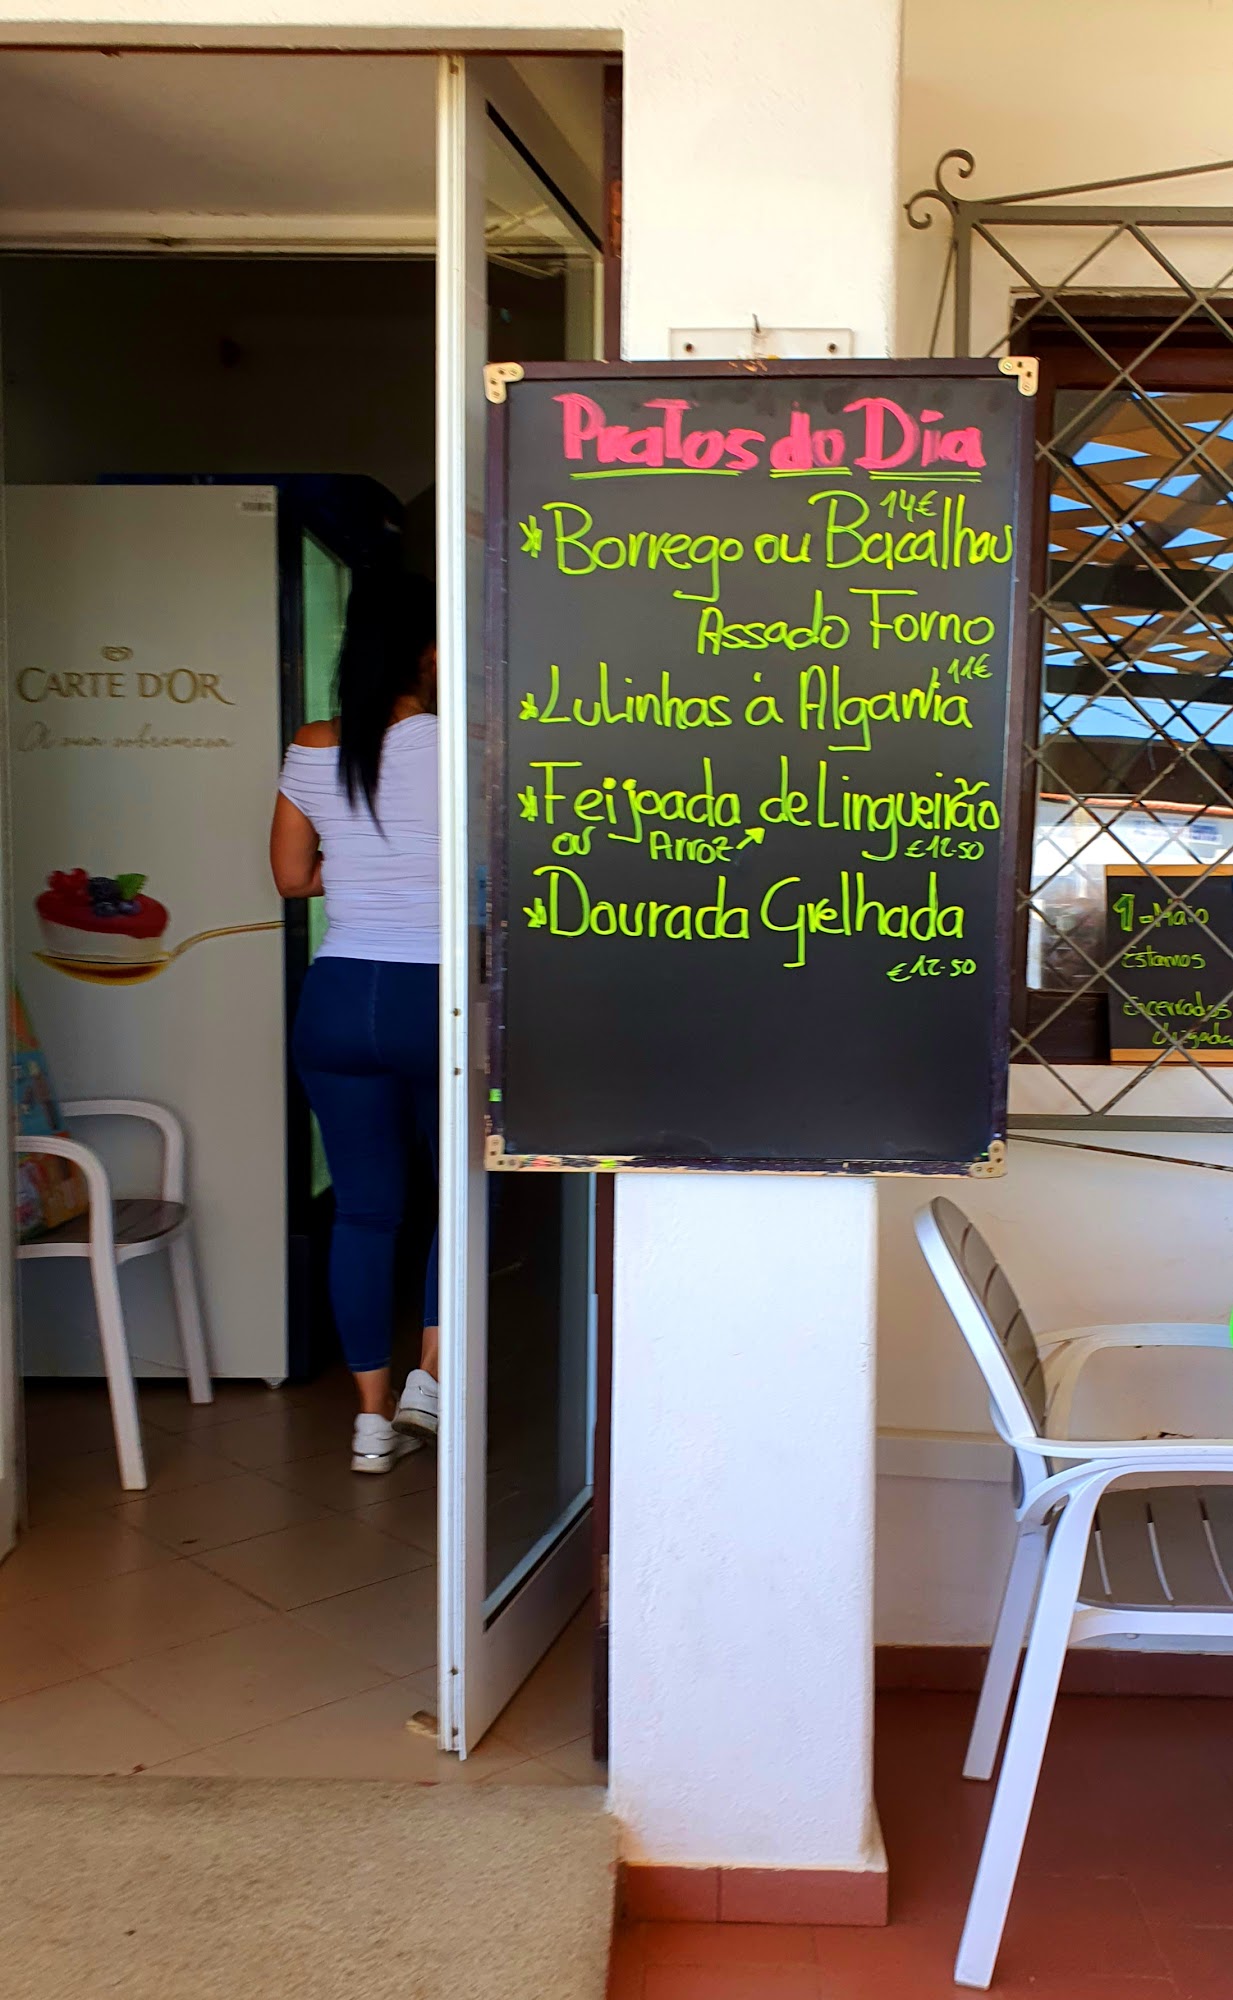 CARTE D'OR
A sua sobremesa
Pratos do Dia
14€
* Borrego ou Bacalhau
Assado Forno
11€
* Lulinhas á Algarvia
* Feijoada de Lingueirão
ou Arroz ↗ €12.50
* Dourada Grelhada
€12.50
1-Maio
Estamos
Encerrados
Obrigada